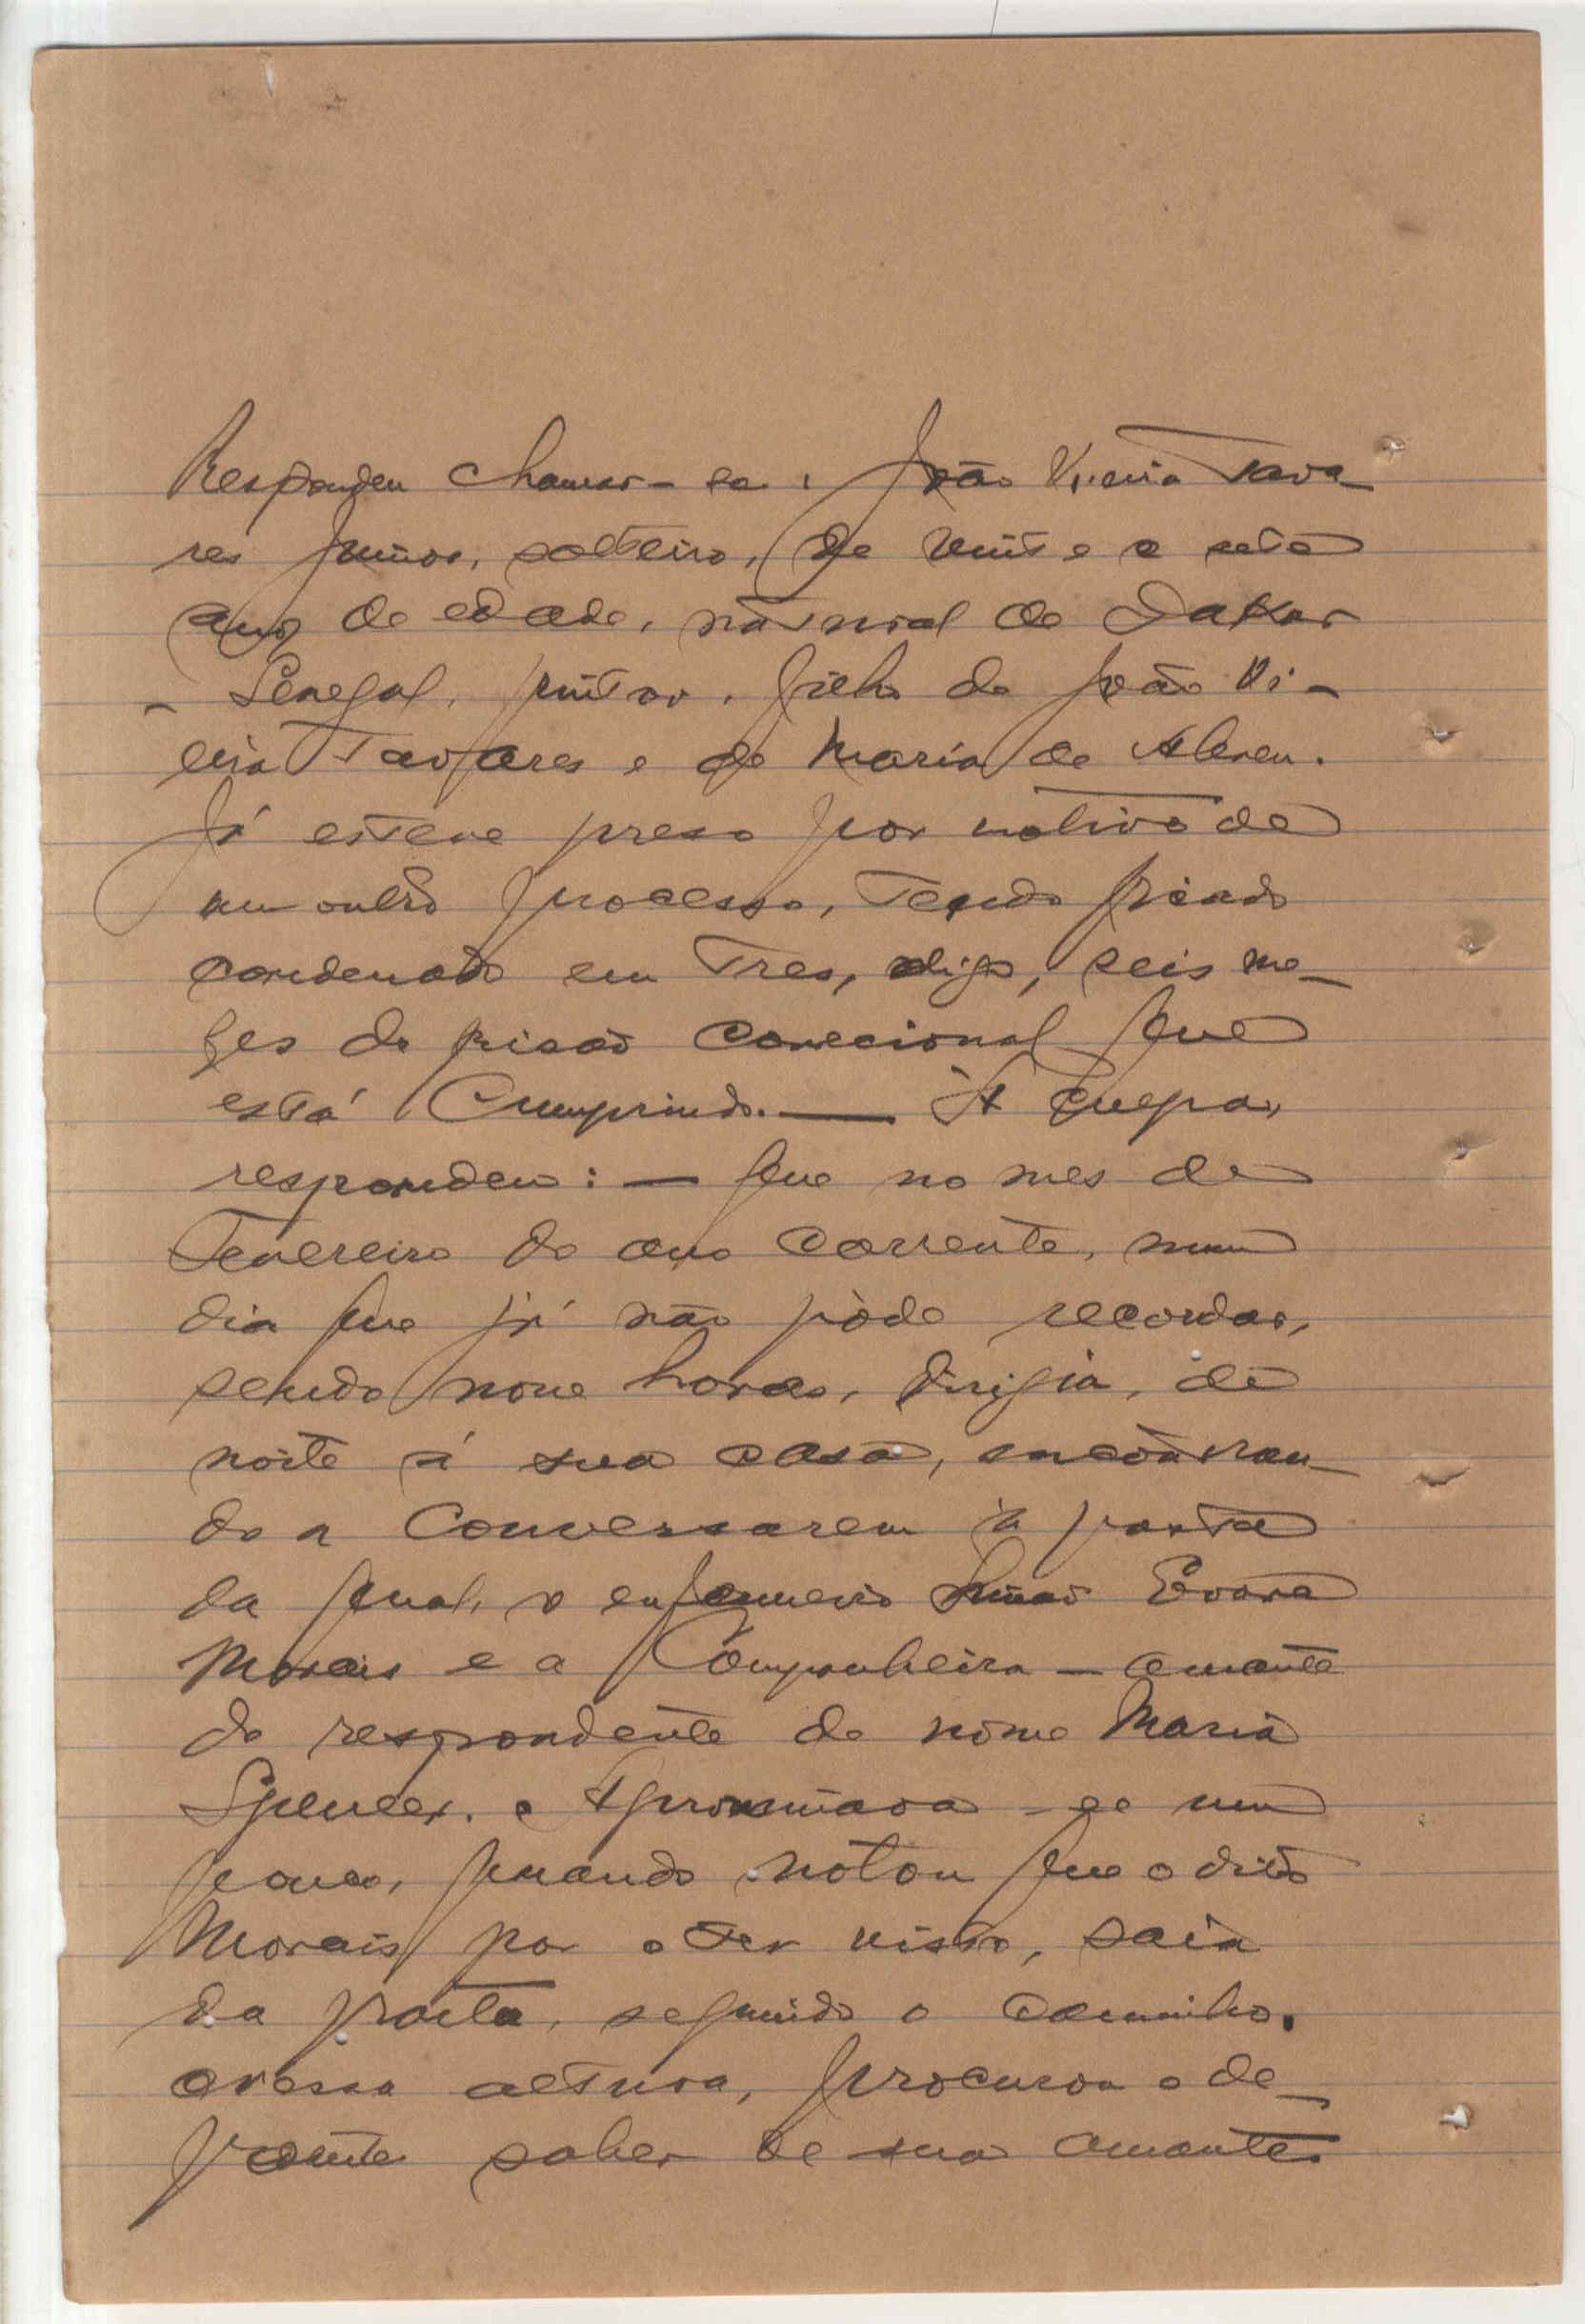 Respondeu chamar-se: João Vieira Tava-
res Junior, solteiro, de vinte e sete
anos de edade, natural de Dakar
- Senegal, pintor, filho de João Vi-
eira Tavares e de Maria de Abreu.
Já esteve preso por motivo de
um outro processo, tendo ficado
condenado em tres, digo, seis me-
zes de prisão correcional que
está cumprindo. — Á culpa,
respondeu: — que no mes de
Fevereiro do ano corrente, num
dia que já não póde recordar,
sendo nove horas, dirigia, de
noite á sua casa, encontran-
do a conversarem á porta
da qual, o enfermeiro Simão Evora
Morais e a companheira - amante
do respondente de nome Maria
Spencer. Aproximava-se um
pouco, quando notou que o dito
Morais por o ter visto, saía
da porta, seguindo o caminho.
nessa altura, procurou o de-
poente saber de sua amante